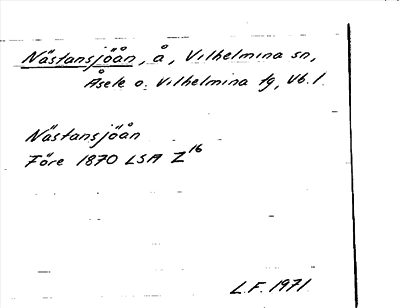 Nästansjöån, å, Vilhelmina sn,
Åsele o. Vilhelmina tg, Vb. l.
Nästansjöån
Före 1870 LSA Z16
L.F. 1971.